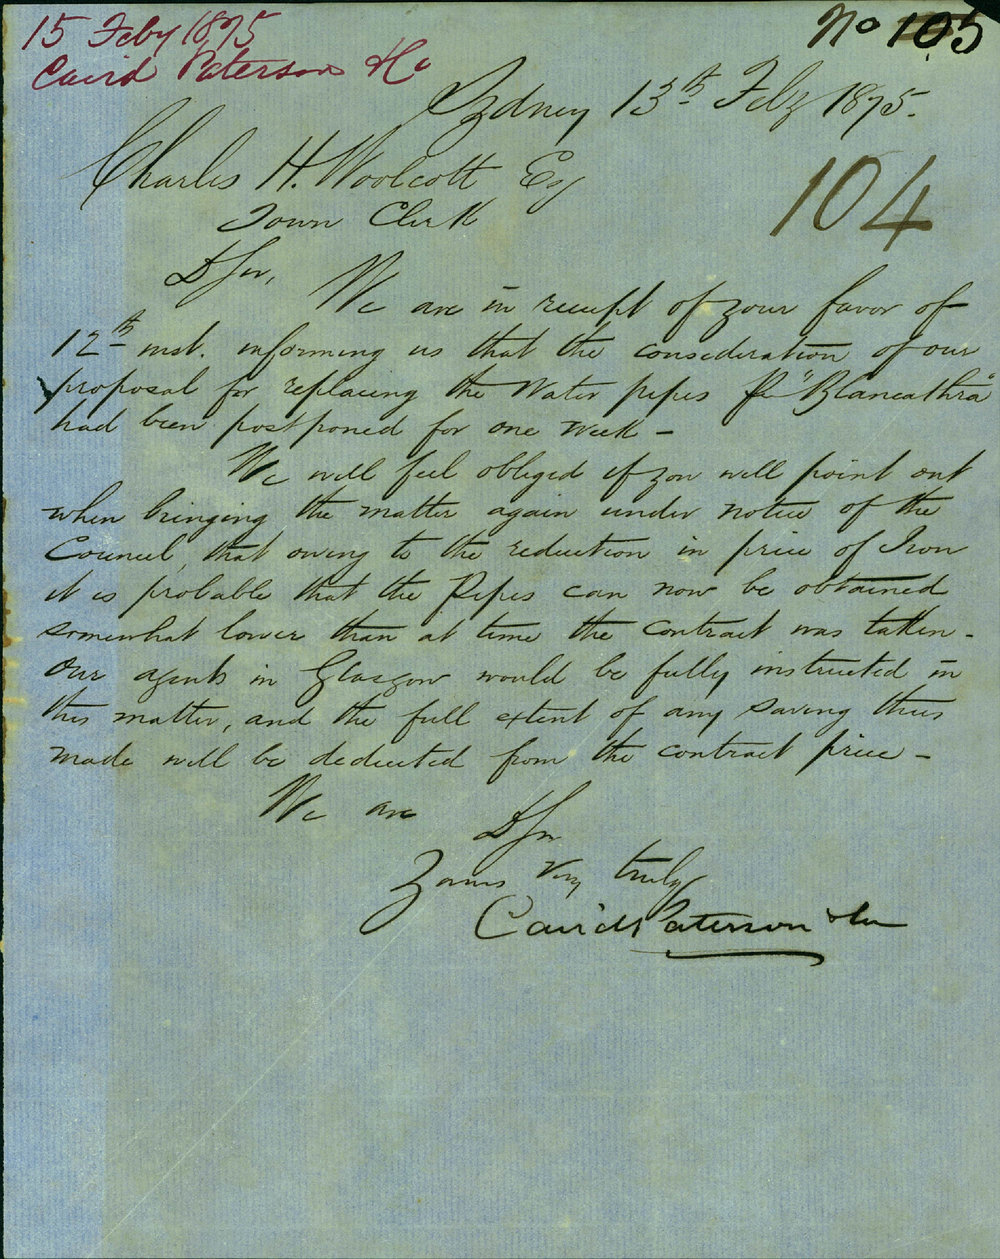 15 Feby 1875
Caird Paterson & Co
No 105
Sydney 13th Feby 1875.
104
Charles H. Woolcott Esq
Town Clerk
D Sir,
We are in receipt of your favor of
12th inst. informing us that the consideration of our
proposal for replacing the Water pipes Pr "Blancathra"
had been postponed for one week -
We will feel obliged if you will point out
when bringing the matter again under notice of the
Council, that owing to the reduction in price of Iron
it is probable that the Pipes can now be obtained
somewhat lower than at time the contract was taken -
Our agents in Glasgow would be fully instructed in
this matter, and the full extent of any saving thus
made will be deducted from the contract price -
We are
D Sir
Yours Very truly
Caird Paterson & Co